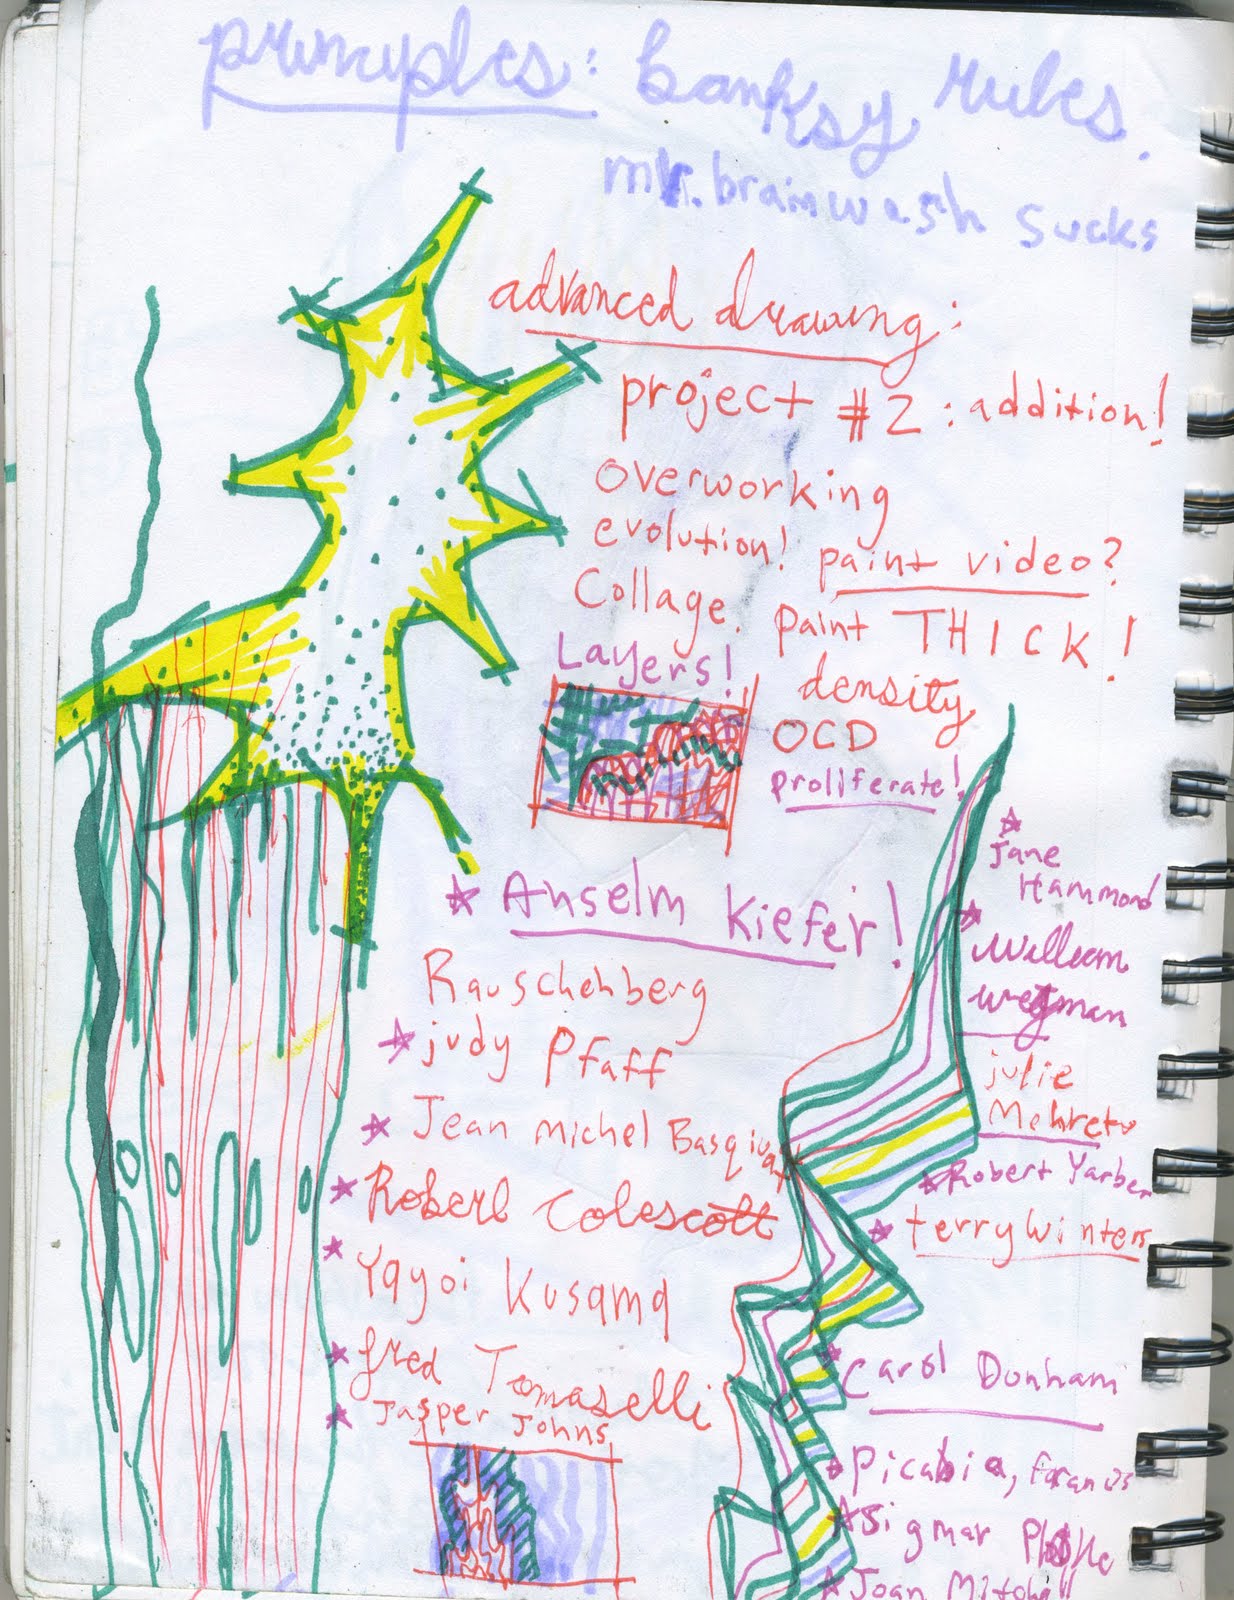 principles: banksy rules.
mr. brainwash sucks
advanced drawing:
project #2: addition!
Overworking
evolution! paint video?
Collage. paint THICK!
Layers! density
OCD
proliferate!
Anselm Kiefer!
Rauschenberg
judy Pfaff
Jean Michel Basquiat
Robert Colescott
Yayoi Kusama
fred Tomaselli
Jasper Johns
Jane
Hammond
William
Wegman
julie
Mehretu
Robert Yarber
terry winters
Carol Dunham
Picabia, francis
Sigmar Polke
Joan Mitchell